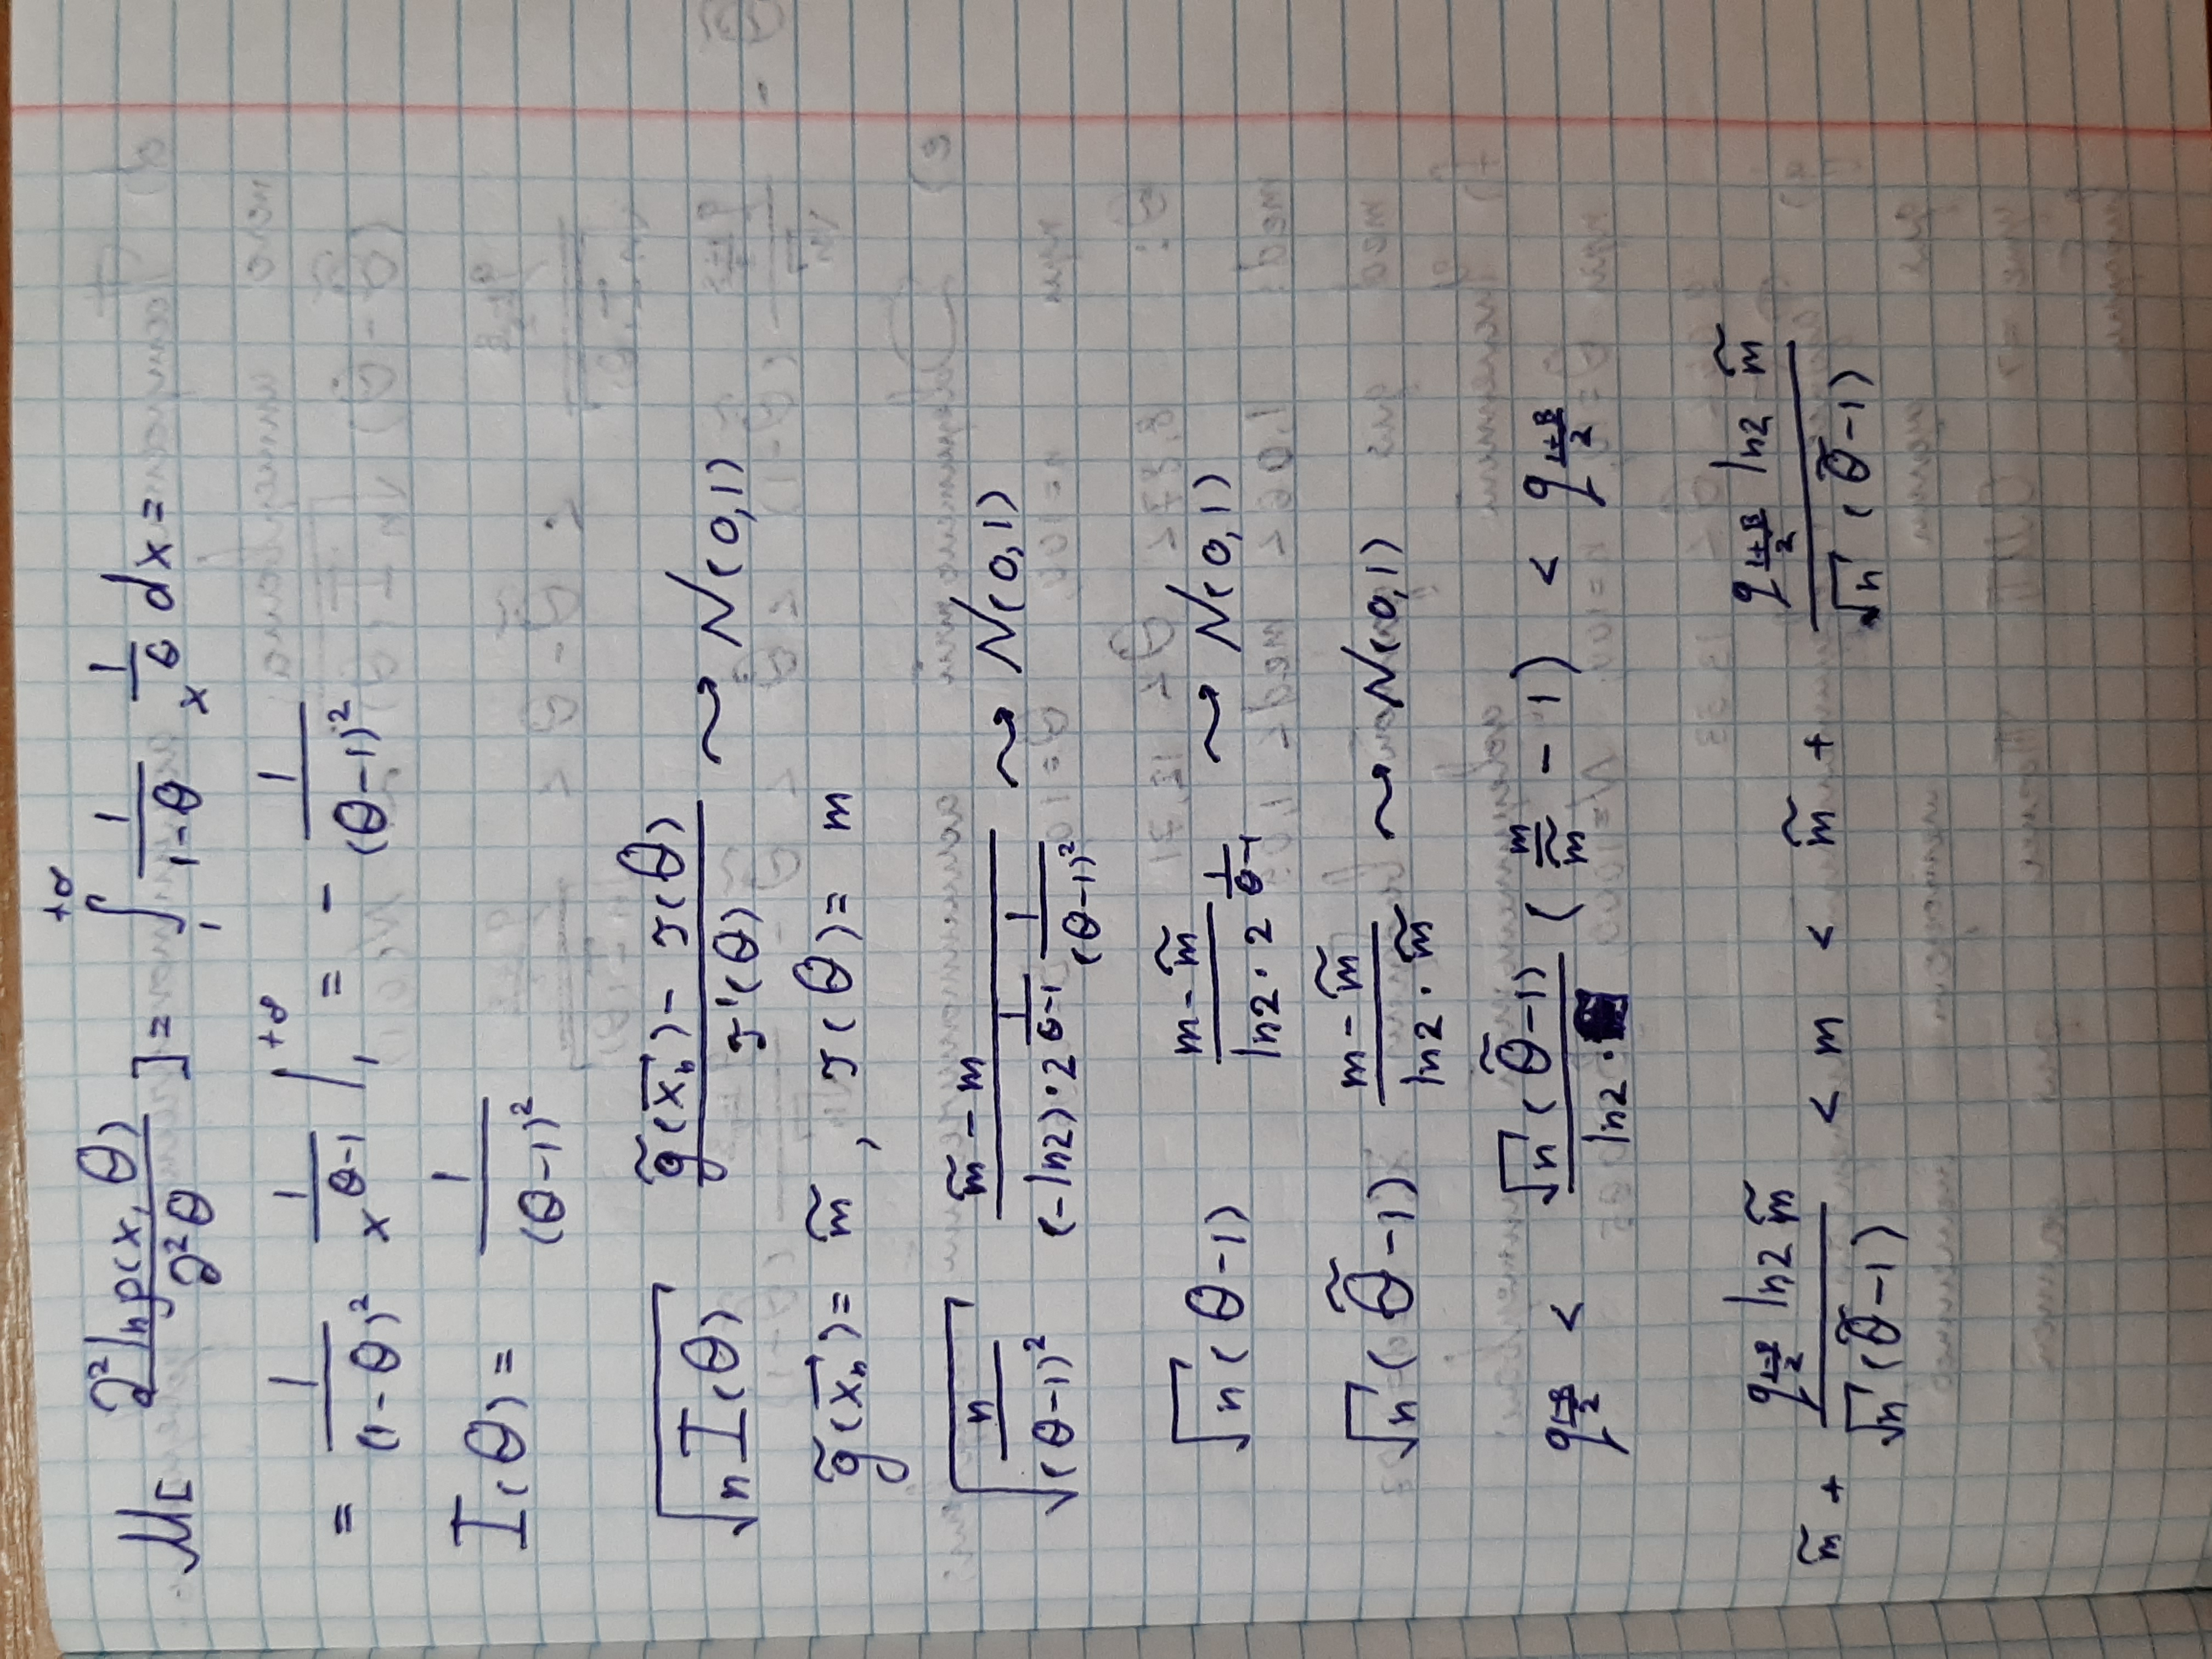 M[ ∂² ln p(x, θ) / ∂²θ ] = ∫₁^{+∞} 1/(1-θ) 1/x^θ dx =
= 1/(1-θ)² 1/x^{θ-1} |₁^{+∞} = - 1/(θ-1)²
I(θ) = 1/(θ-1)²
√(n I(θ)) (g̃(x⃗ₙ) - τ(θ)) / τ'(θ) ⇝ N(0,1)
g̃(x⃗ₙ) = m̃ , τ(θ) = m
√(n/(θ-1)²) (m̃ - m) / ((-ln2)·2^{1/(θ-1)} 1/(θ-1)²) ⇝ N(0,1)
√n (θ-1) (m - m̃) / (ln2 · 2^{1/(θ-1)}) ⇝ N(0,1)
√n (θ̃-1) (m - m̃) / (ln2 · m̃) ⇝ N(0,1)
q_{(1-β)/2} < √n (θ̃-1) / (ln2 ·) (m/m̃ - 1) < q_{(1+β)/2}
m̃ + q_{(1-β)/2} ln2 m̃ / (√n (θ̃-1)) < m < m̃ + q_{(1+β)/2} ln2 m̃ / (√n (θ̃-1))